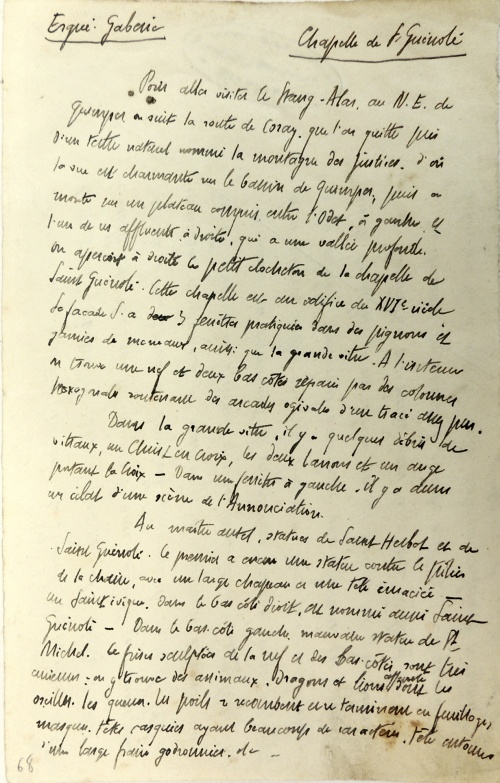 Ergué-Gabéric
Chapelle de St Guénolé
Pour aller visiter le Stang-Alar, au N.E. de
Quimper on suit la route de Coray, que l'on quitte près
d'un tertre naturel nommé la montagne des justices. d'où
la vue est charmante sur le bassin de Quimper, puis on
monte sur un plateau compris entre l'Odet, à gauche et
l'un de ses affluents à droite, qui a une vallée profonde.
on aperçoit à droite le petit clocheton de la chapelle de
Saint Guénolé. Cette chapelle est un édifice du XVIe siècle
La façade S. a 3 fenêtres pratiquées dans des pignons et
garnies de meneaux, ainsi que la grande vitre. A l'intérieur
on trouve une nef et deux bas côtés séparés par des colonnes
hexagonales soutenant des arcades ogivales d'un tracé assez pur.
Dans la grande vitre, il y a quelques débris de
vitraux, un Christ en Croix, les deux larrons et un ange
portant la Croix — Dans une fenêtre à gauche, il y a aussi
un éclat d'une scène de l'Annonciation.
Au maître autel, statues de Saint Herbot et de
Saint Guénolé. Le premier a une statue contre le pilier
de la chaire, avec un large chapeau et une tête émaciée —
un Saint évêque, dans le bas côté droit, est nommé aussi Saint
Guénolé — Dans le bas-côté gauche mauvaise statue de St
Michel. Les frises sculptées de la nef et des bas-côtés sont très
curieuses: on y trouve des animaux, dragons et lions dont les
oreilles, les queues, les poils se recourbent en terminent en feuillages,
masques, têtes casquées ayant beaucoup de caractère, tête entourée
d'une large fraise godronnée, etc —
68